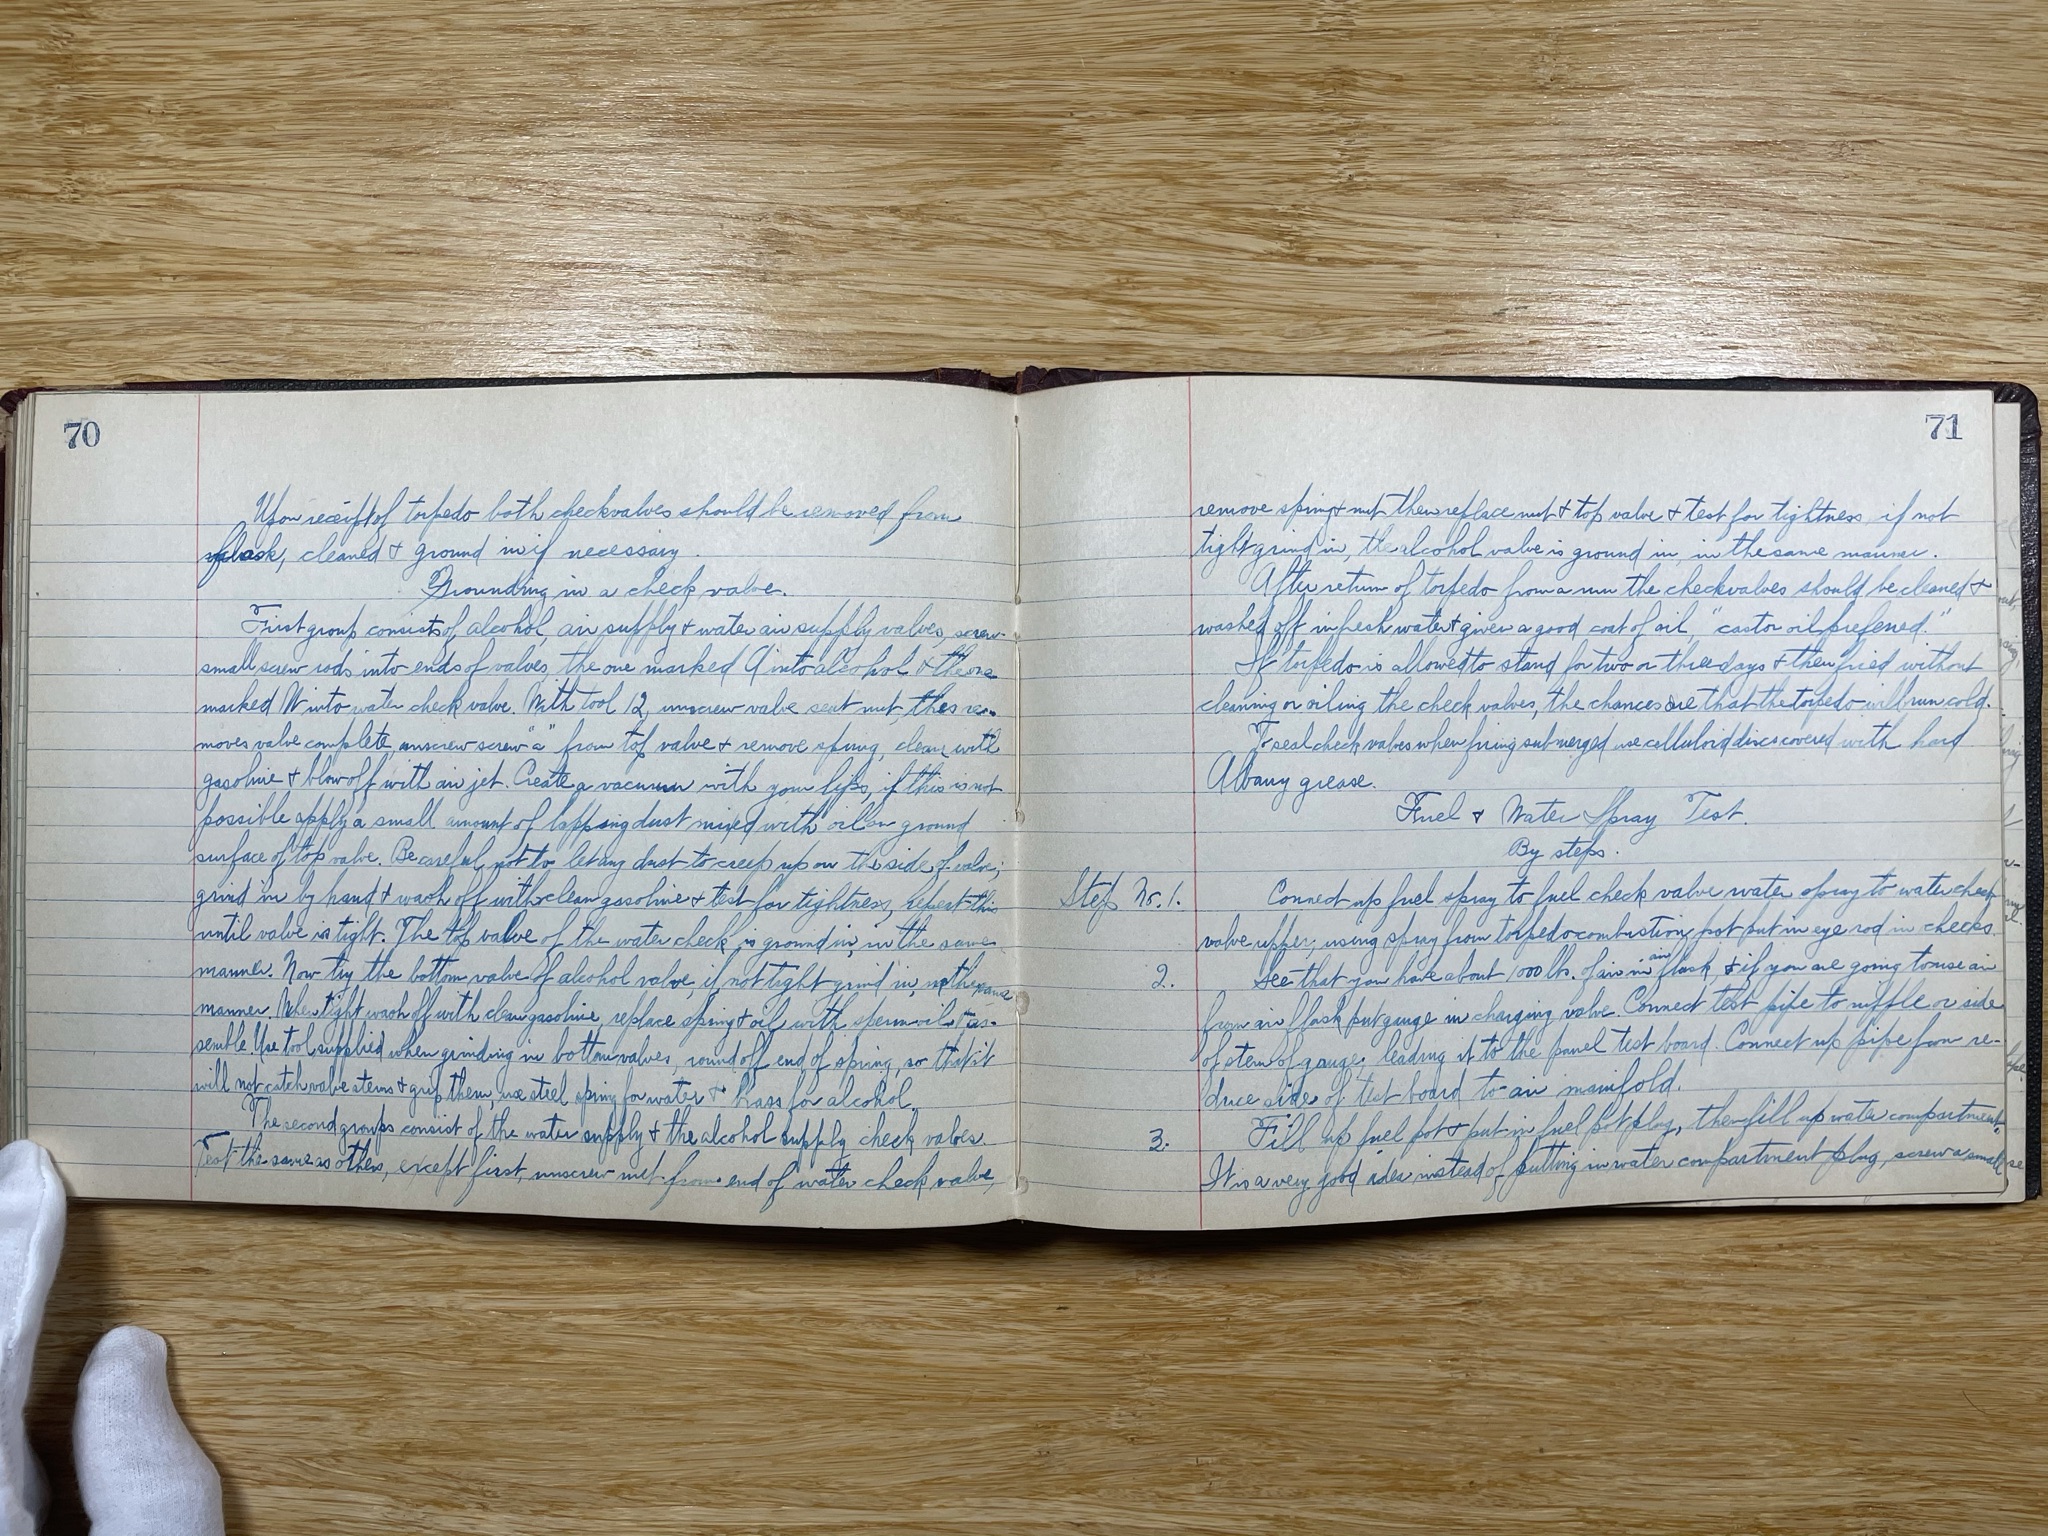 70
Upon receipt of torpedo both checkvalves should be removed from
flask, cleaned & ground in if necessary.
Grounding in a check valve.
First group consists of alcohol, air supply & water air supply valves, screw
small screw rods into ends of valves, the one marked A into alcohol & the one
marked W into water check valve. With tool 12, unscrew valve seat nut this re-
moves valve complete, unscrew screw "a" from top valve & remove spring, clean with
gasoline & blow off with air jet. Create a vacuum with your lips, if this is not
possible apply a small amount of lapping dust mixed with oil on ground
surface of top valve. Be careful not to let any dust to creep up on the side of valve;
grind in by hand & wash off with clean gasoline & test for tightness, repeat this
until valve is tight. The top valve of the water check is ground in, in the same
manner. Now try the bottom valve of alcohol valve, if not tight grind in, in the same
manner. When tight wash off with clean gasoline, replace spring & oil with sperm oil & as-
semble. Use tool supplied when grinding in bottom valves, round off end of spring, so that it
will not catch valve stems & grip them, use steel spring for water & brass for alcohol.
The second groups consist of the water supply & the alcohol supply check valves.
Test the same as others, except first, unscrew nut from end of water check valve,
71
remove spring & nut then replace nut & top valve & test for tightness if not
tight grind in, the alcohol valve is ground in, in the same manner.
After return of torpedo from a run the checkvalves should be cleaned &
washed off in fresh water & given a good coat of oil, "castor oil preferred."
If torpedo is allowed to stand for two or three days & then fried without
cleaning or oiling the check valves, the chances are that the torpedo will run cold.
To seal check valves when firing submerged use celluloid discs covered with hard
Albany grease.
Fuel & Water Spray Test.
By steps.
Step No. 1. Connect up fuel spray to fuel check valve water spray to water check
valve upper, using spray from torpedo combustion pot put in eye rod in checks.
2. See that you have about 1000 lbs. of air in air flask, & if you are going to use air
from air flask put gauge in charging valve. Connect test pipe to nipple or side
of stem of gauge, leading it to the panel test board. Connect up pipe from re-
duce side of test board to air manifold.
3. Fill up fuel pot & put in fuel pot plug, then fill up water compartment.
It is a very good idea instead of putting in water compartment plug, screw a small